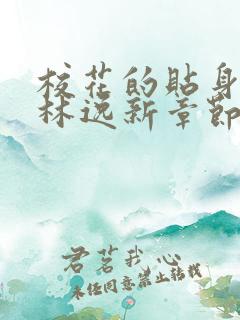 校花的贴身
林逸新章节
君茗我心
未经同意禁止转载